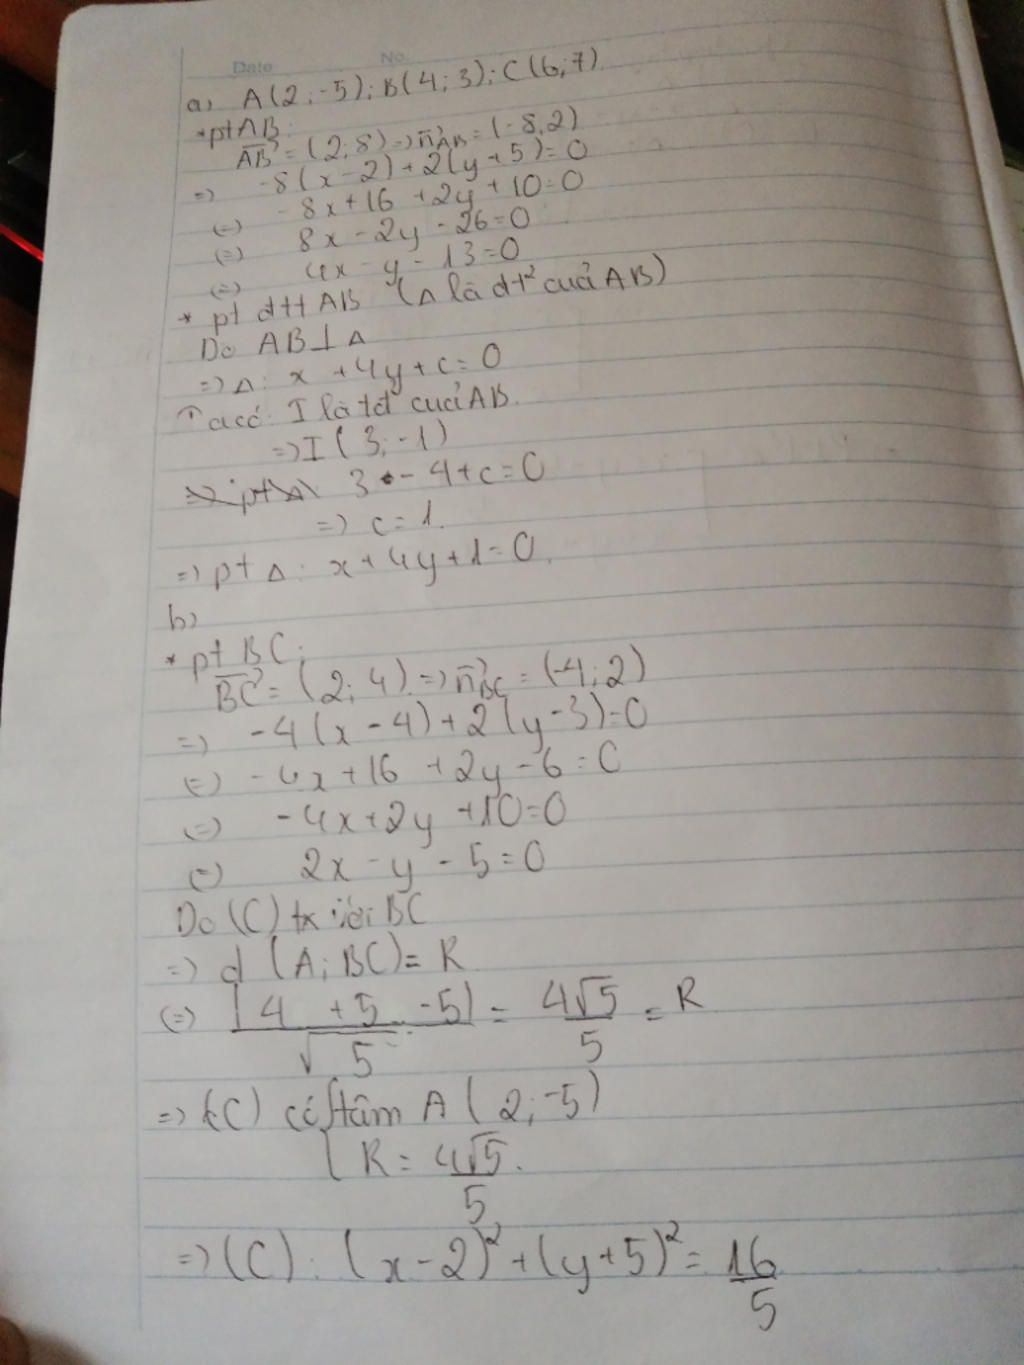 Date No.
a, A(2;-5); B(4;3); C(6;7)
*pt AB:
AB→ = (2;8) => n→AB = (-8,2)
=> -8(x-2)+2(y+5)=0
(=) -8x+16+2y+10=0
(=) 8x-2y-26=0
(=) 4x-y-13=0
* pt đtt AB (Δ là đt² của AB)
Do AB⊥Δ
=> Δ: x+4y+c=0
Ta có: I là tđ của AB.
=> I(3;-1)
3 - 4+c=0
=> c=1.
=> pt Δ: x+4y+1=0.
b,
* pt BC:
BC→ = (2;4) => n→BC = (-4;2)
=> -4(x-4)+2(y-3)=0
(=) -4x+16+2y-6=0
(=) -4x+2y+10=0
(=) 2x-y-5=0
Do (C) tx với BC
=> d(A;BC)=R
(=) |4+5-5|/√5 = 4√5/5 = R
=> (C) có {tâm A(2;-5)
R = 4√5/5.
=> (C): (x-2)²+(y+5)²=16/5